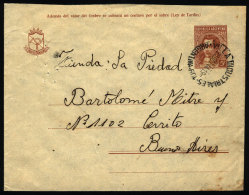 Además del valor del timbre se cobrará un centavo por el sobre (Ley de Tarifas)
Tienda La Piedad
Bartolomé Mitre y
Nº 1102 Cerrito
Buenos Aires